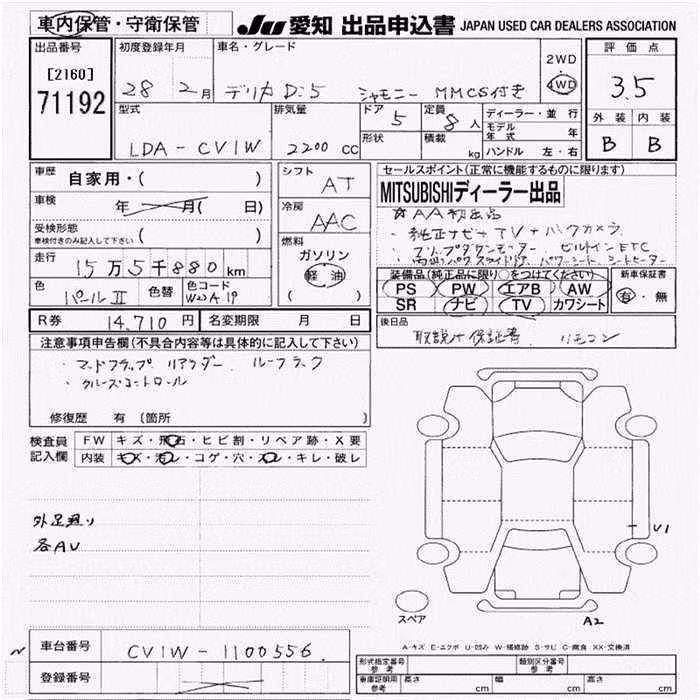 車内保管・守衛保管 JU 愛知 出品申込書 JAPAN USED CAR DEALERS ASSOCIATION
出品番号 初度登録年月 車名・グレード 2WD 評価点
[2160] 28 2月 デリカD:5 シャモニー MMCS付き 4WD 3.5
71192
型式 排気量 ドア 5 定員 8人 ディーラー・並行 外装 内装
LDA-CV1W 2200CC 形状 積載 kg モデル年式 年 B B
ハンドル 左・右
車歴 自家用・( ) シフト AT セールスポイント(正常に機能するものに限ります)
MITSUBISHIディーラー出品
車検 年 月( 日) 冷房 AAC ☆AA初出品
受検形態 ( )
車検付きのみ記入して下さい
・純正ナビ+TV+バックカメラ
燃料 ガソリン ・フリップダウンモニター ビルトインETC
軽油
( )
走行 15万5千880km
装備品(純正品に限り○をつけてください) 新車保証書
色 パールII 色替 色コード W13A19
PS PW エアB AW 有・無
SR ナビ TV カワシート
R券 14,710円 名変期限 月 日
後日品 取説+保証書 リモコン
注意事項申告欄(不具合内容等は具体的に記入して下さい)
・マッドフラップ リアアンダー ルーフラック
・クルーズコントロール
修復歴 有 (箇所 )
検査員記入欄 FW キズ・飛石・ヒビ割・リペア跡・X要
内装 キズ・汚レ・コゲ・穴・スレ・キレ・破レ
外足廻り
各AU
U1
スペア
A2
車台番号 CV1W-1100556
登録番号
A-キズ E-エクボ U-凹み W-補修跡 S-サビ C-腐食 XX-交換済
形式指定番号 参考 類別区分番号 参考
車庫証明用 参考 長さ cm 幅 cm 高さ cm